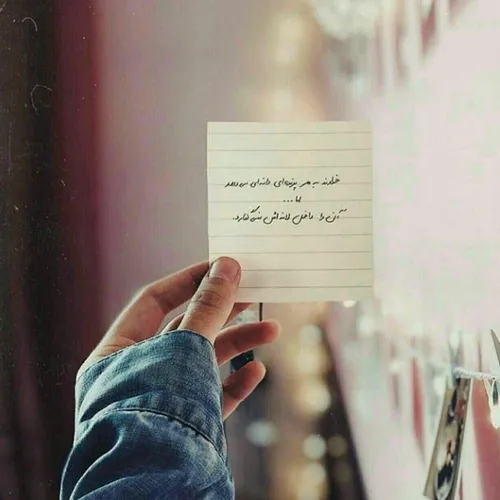 خداوند به هر پرنده‌ای دانه‌ای می‌دهد
اما...
آن را داخل لانه‌اش نمی‌گذارد.